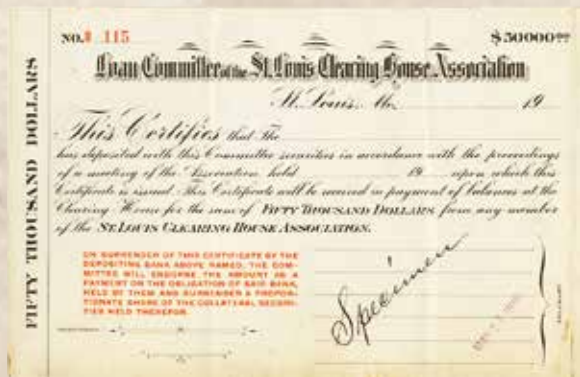 NO. 115
$50000.00
Loan Committee of the St. Louis Clearing House Association
St. Louis, Mo. 19
This Certifies that The
has deposited with this Committee securities in accordance with the proceedings
of a meeting of the Association held 19 upon which this
Certificate is issued. This Certificate will be received in payment of balances at the
Clearing House for the sum of FIFTY THOUSAND DOLLARS, from any member
of the ST. LOUIS CLEARING HOUSE ASSOCIATION.
FIFTY THOUSAND DOLLARS
ON SURRENDER OF THIS CERTIFICATE BY THE
DEPOSITING BANK ABOVE NAMED, THE COM-
MITTEE WILL ENDORSE THE AMOUNT AS A
PAYMENT ON THE OBLIGATION OF SAID BANK,
HELD BY THEM AND SURRENDER A PROPOR-
TIONATE SHARE OF THE COLLATERAL SECURI-
TIES HELD THEREFOR.
Specimen